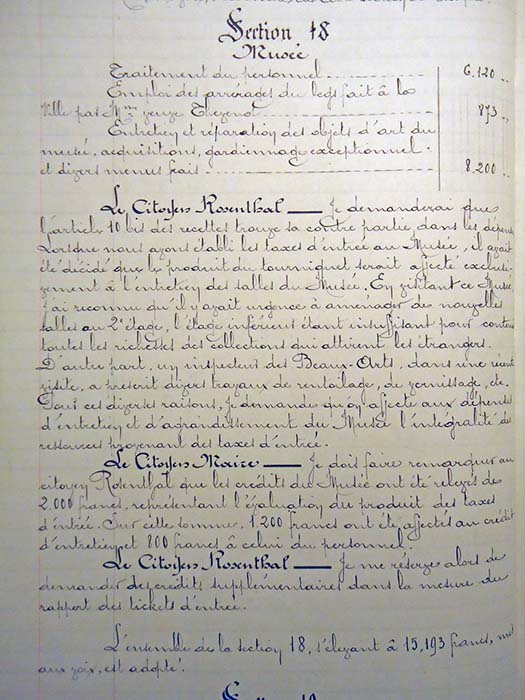 Section 18
Musée
Traitement du personnel 6.120 "
Emploi des arrérages du legs fait à la
Ville par Mme veuve Thézenot 873 "
Entretien et réparation des objets d'art du
musée, acquisitions, gardiennage exceptionnel
et divers menus frais 8.200 "
Le Citoyen Rosenthal — Je demanderai que
l'article 10 bis des recettes trouve sa contre partie dans les
Lorsque nous avons établi les taxes d'entrée au Musée, il avait
été décidé que le produit du tourniquet serait affecté exclusi-
vement à l'entretien des salles du Musée. En visitant ce Musée
j'ai reconnu qu'il y avait urgence à aménager de nouvelles
salles au 2e étage, l'étage inférieur étant insuffisant pour
toutes les richesses des collections qui attirent les étrangers.
D'autre part, un inspecteur des Beaux-Arts, dans une
visite, a prescrit divers travaux de rentoilage, de vernissage, etc.
Pour ces diverses raisons, je demande qu'on affecte aux dépenses
d'entretien et d'agrandissement du Musée l'intégralité des
ressources provenant des taxes d'entrée.
Le Citoyen Maire — Je dois faire remarquer au
citoyen Rosenthal que les crédits du Musée ont été relevés de
2.000 francs, représentant l'évaluation du produit des taxes
d'entrée. Sur cette somme, 1.200 francs ont été affectés au crédit
d'entretien et 800 francs à celui du personnel.
Le Citoyen Rosenthal — Je me réserve alors de
demander des crédits supplémentaires dans la mesure du
rapport des tickets d'entrée.
L'ensemble de la section 18, s'élevant à 15,193 francs, mis
aux voix, est adopté.